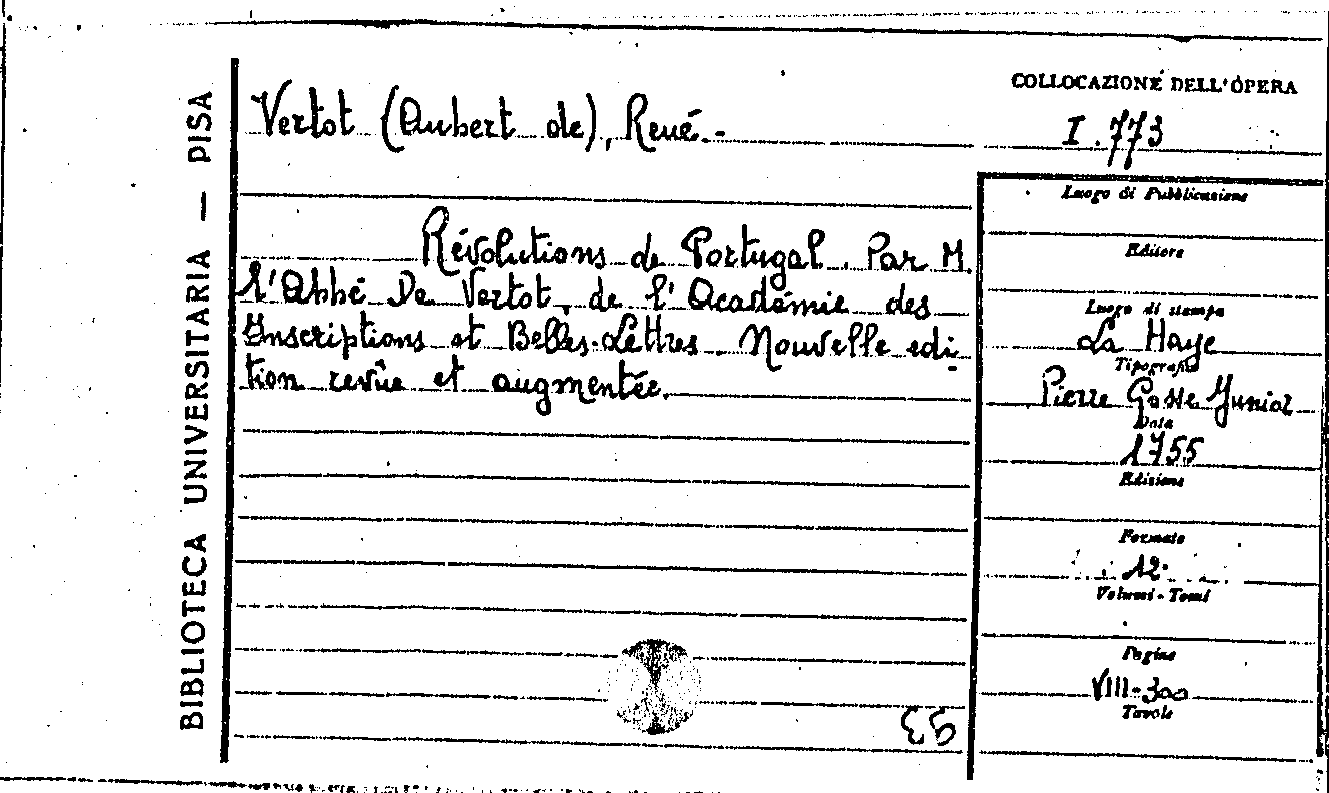 BIBLIOTECA UNIVERSITARIA — PISA
Vertot (Aubert de), René.-
Révolutions de Portugal. Par M.
l'Abbé De Vertot, de l'Académie des
Inscriptions et Belles-Lettres. Nouvelle edi-
tion revûe et augmentée.
COLLOCAZIONE DELL'OPERA
I.773
Luogo di Pubblicazione
Editore
Luogo di stampa
La Haye
Tipografia
Pierre Gosse Junior
Data
1755
Edizione
Formato
12°
Volumi - Tomi
Pagine
VIII-300
Tavole